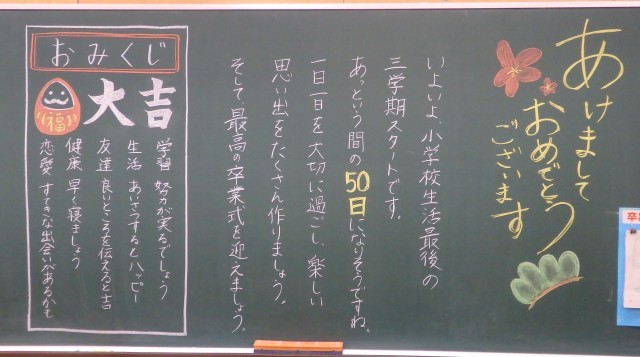 あけまして
おめでとう
ございます
いよいよ、小学校生活最後の
三学期スタートです。
あっという間の50日になりそうですね。
一日一日を大切に過ごし、楽しい
思い出をたくさん作りましょう。
そして、最高の卒業式を迎えましょう。
おみくじ
大吉
福
学習 努力が実るでしょう
生活 あいさつするとハッピー
友達 良いところを伝えると吉
健康 早く寝ましょう
恋愛 すてきな出会いがあるかも